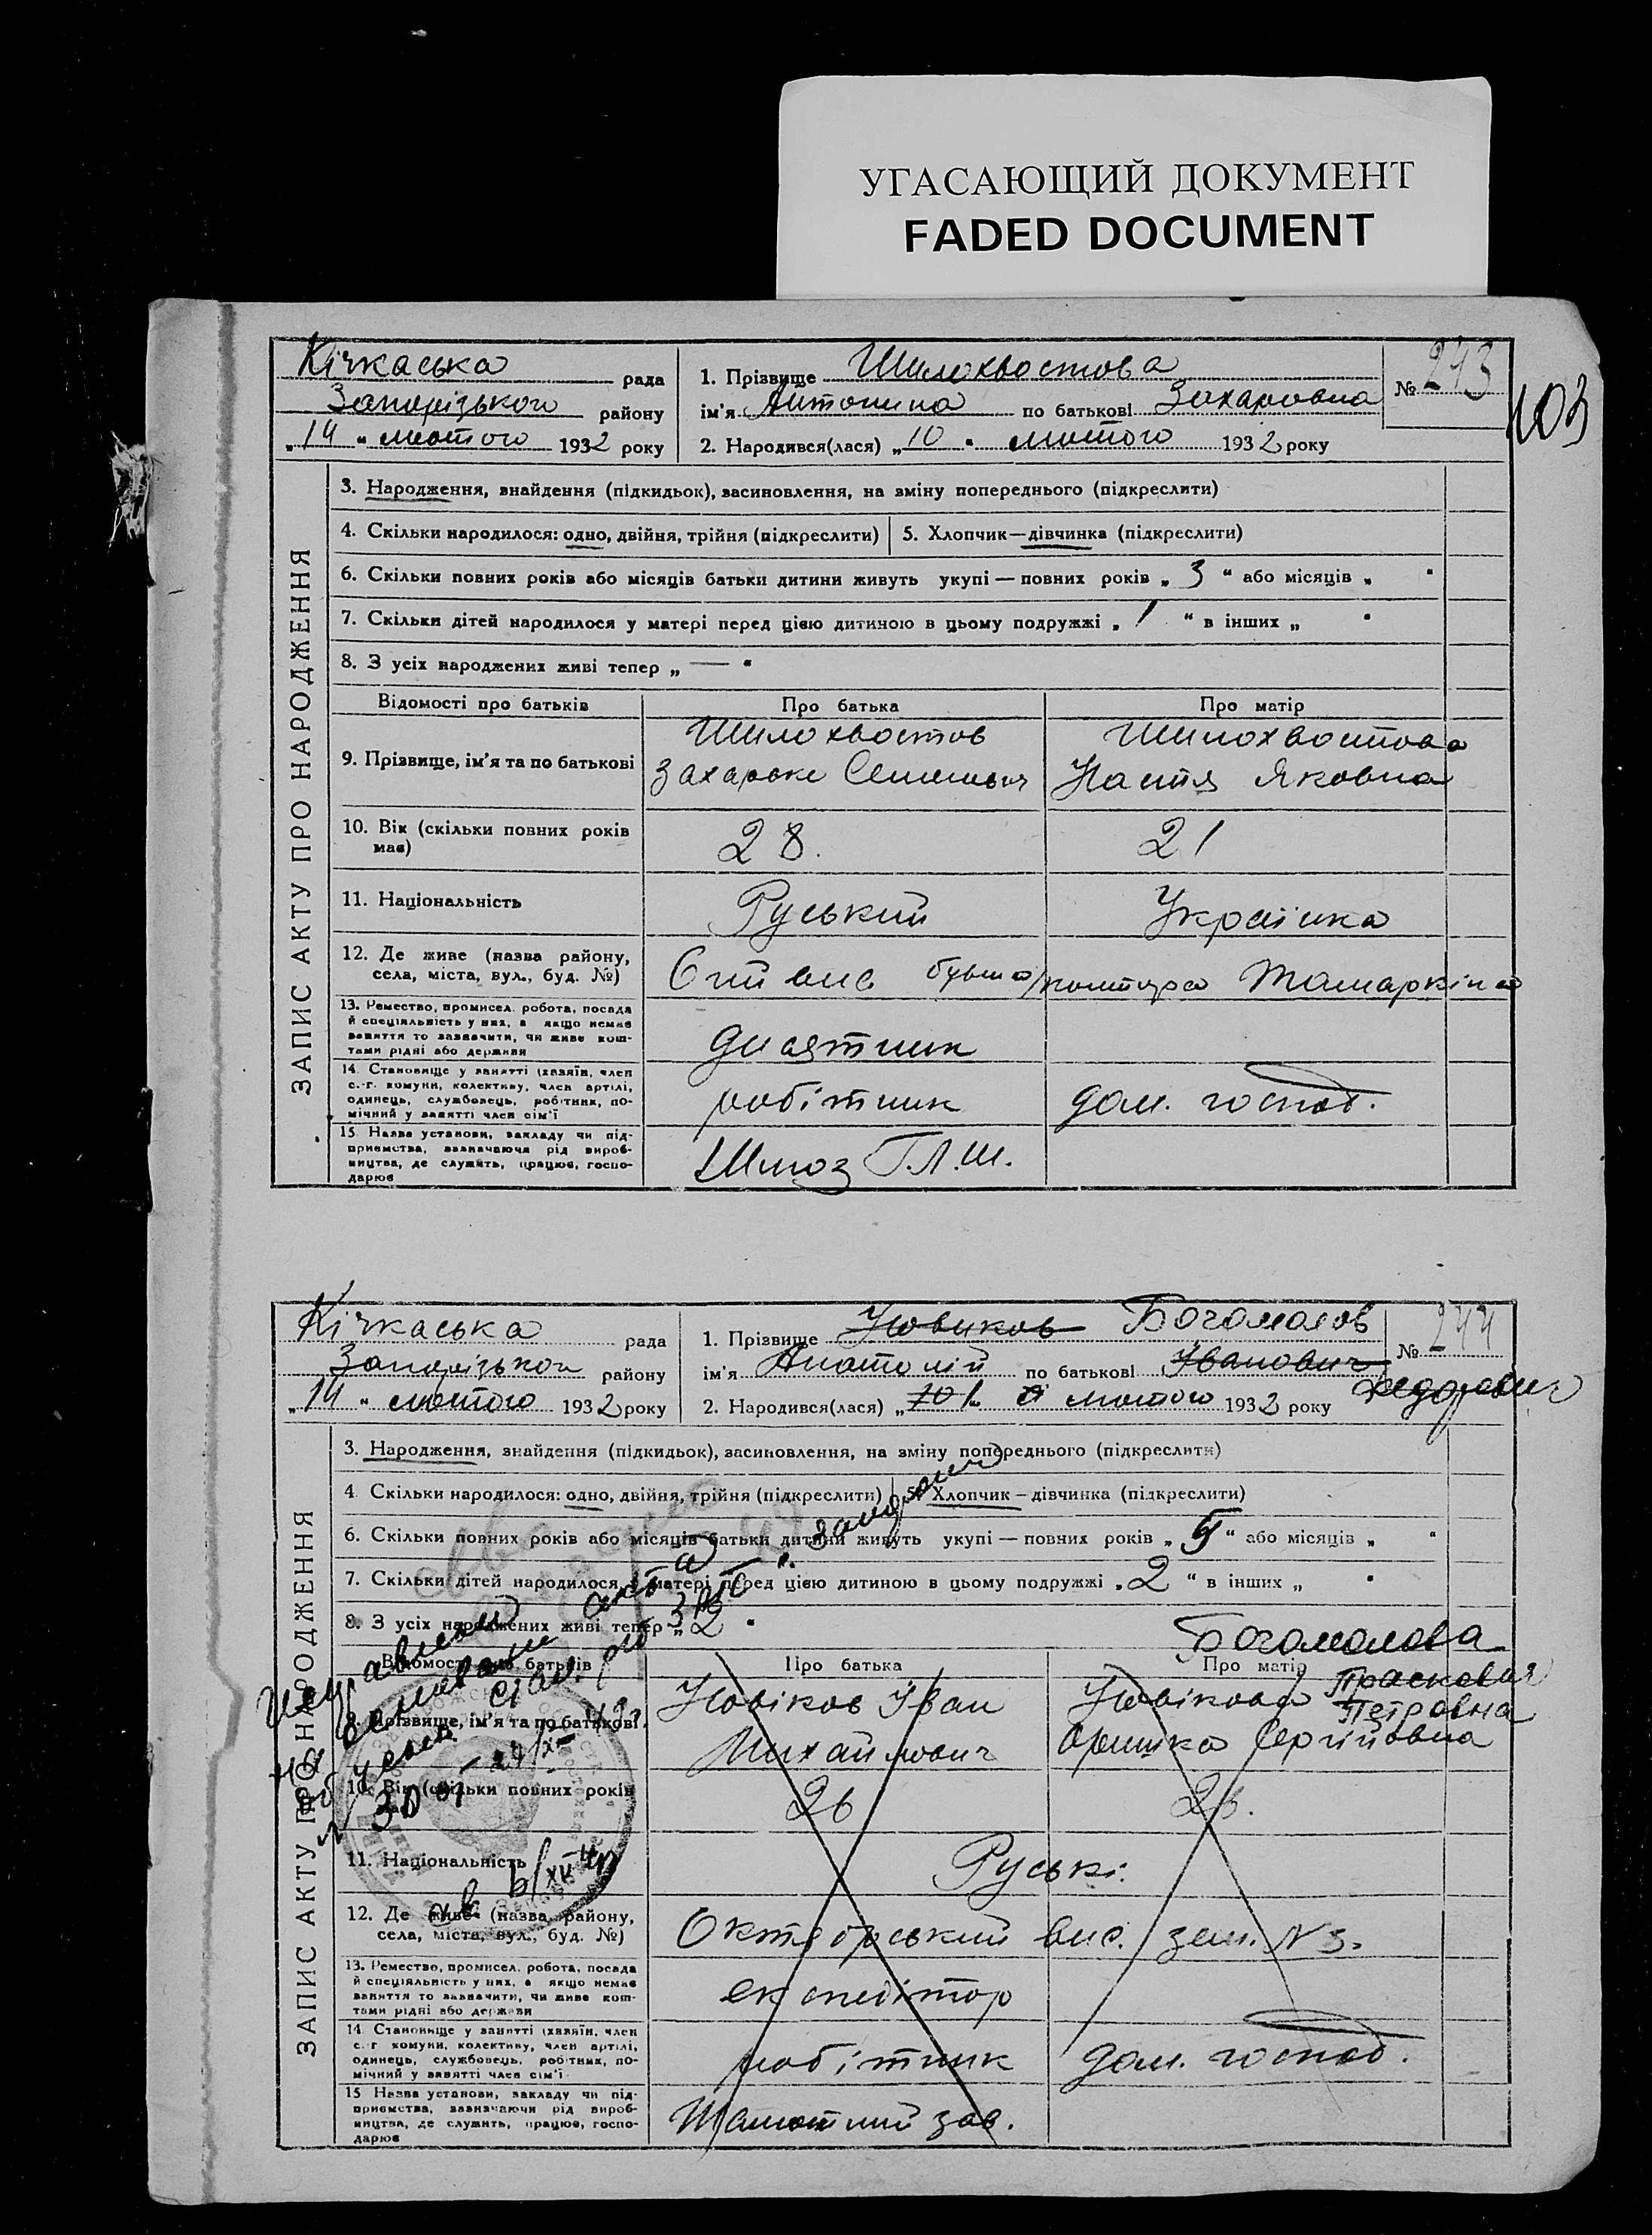 УГАСАЮЩИЙ ДОКУМЕНТ
FADED DOCUMENT
103
Кічкаська рада
Запорізького району
„14“ лютого 1932 року
1. Прізвище Шилохвостова
ім'я Антонина по батькові Захаровна
2. Народився(лася) „10“ лютого 1932 року
№ 243
ЗАПИС АКТУ ПРО НАРОДЖЕННЯ
3. Народження, знайдення (підкидьок), засиновлення, на зміну попереднього (підкреслити)
4. Скільки народилося: одно, двійня, трійня (підкреслити) 5. Хлопчик—дівчинка (підкреслити)
6. Скільки повних років або місяців батьки дитини живуть укупі — повних років „3“ або місяців „ “
7. Скільки дітей народилося у матері перед цією дитиною в цьому подружжі „1“ в інших „ “
8. З усіх народжених живі тепер „—“
Відомості про батьків Про батька Про матір
9. Прізвище, ім'я та по батькові
Шилохвостов Шилохвостова
Семенович Настя Яковна
10. Вік (скільки повних років має) 28. 21
11. Національність Руський Українка
12. Де живе (назва району,
села, міста, вул., буд. №)
вис
13. Ремество, промисел. робота, посада
й спеціяльність у них, а якщо немає
заняття то зазначити, чи живе кош-
тами рідні або держави
десятник
14. Становище у занятті (хазяїн, член
с.-г. комуни, колективу, член артілі,
одинець, службовець, робітник, по-
мічний у занятті член сім'ї
робітник дом. господ.
15. Назва установи, закладу чи під-
приємства, зазначаючи рід вироб-
ництва, де служить, працює, госпо-
дарює
Шлюз
Кічкаська рада
Запорізького району
„14“ лютого 1932 року
1. Прізвище Новиков Богомолов
ім'я Анатолій по батькові Іванович Федорович
2. Народився(лася) лютого 1932 року
№ 244
ЗАПИС АКТУ ПРО НАРОДЖЕННЯ
3. Народження, знайдення (підкидьок), засиновлення, на зміну попереднього (підкреслити)
4. Скільки народилося: одно, двійня, трійня (підкреслити) 5. Хлопчик – дівчинка (підкреслити)
6. Скільки повних років або місяців батьки дитини живуть укупі — повних років або місяців „ “
7. Скільки дітей народилося у матері перед цією дитиною в цьому подружжі „2“ в інших „ “
8. З усіх народжених живі тепер „2“
Богомолова
Прасковья
Петровна
Відомості про батьків Про батька Про матір
9. Прізвище, ім'я та по батькові
Новіков Іван Новікова
Михайлович Оришка Сергійовна
10. Вік (скільки повних років має) 26
11. Національність Руські.
12. Де живе (назва району,
села, міста, вул., буд. №)
Октябрський вис. зем. N 3.
13. Ремество, промисел. робота, посада
й спеціяльність у них, а якщо немає
заняття то зазначити, чи живе кош-
тами рідні або держави
експедітор
14. Становище у занятті (хазяїн, член
с.-г. комуни, колективу, член артілі,
одинець, службовець, робітник, по-
мічний у занятті член сім'ї
робітник дом. господ.
15. Назва установи, закладу чи під-
приємства, зазначаючи рід вироб-
ництва, де служить, працює, госпо-
дарює
Шамотний зав.